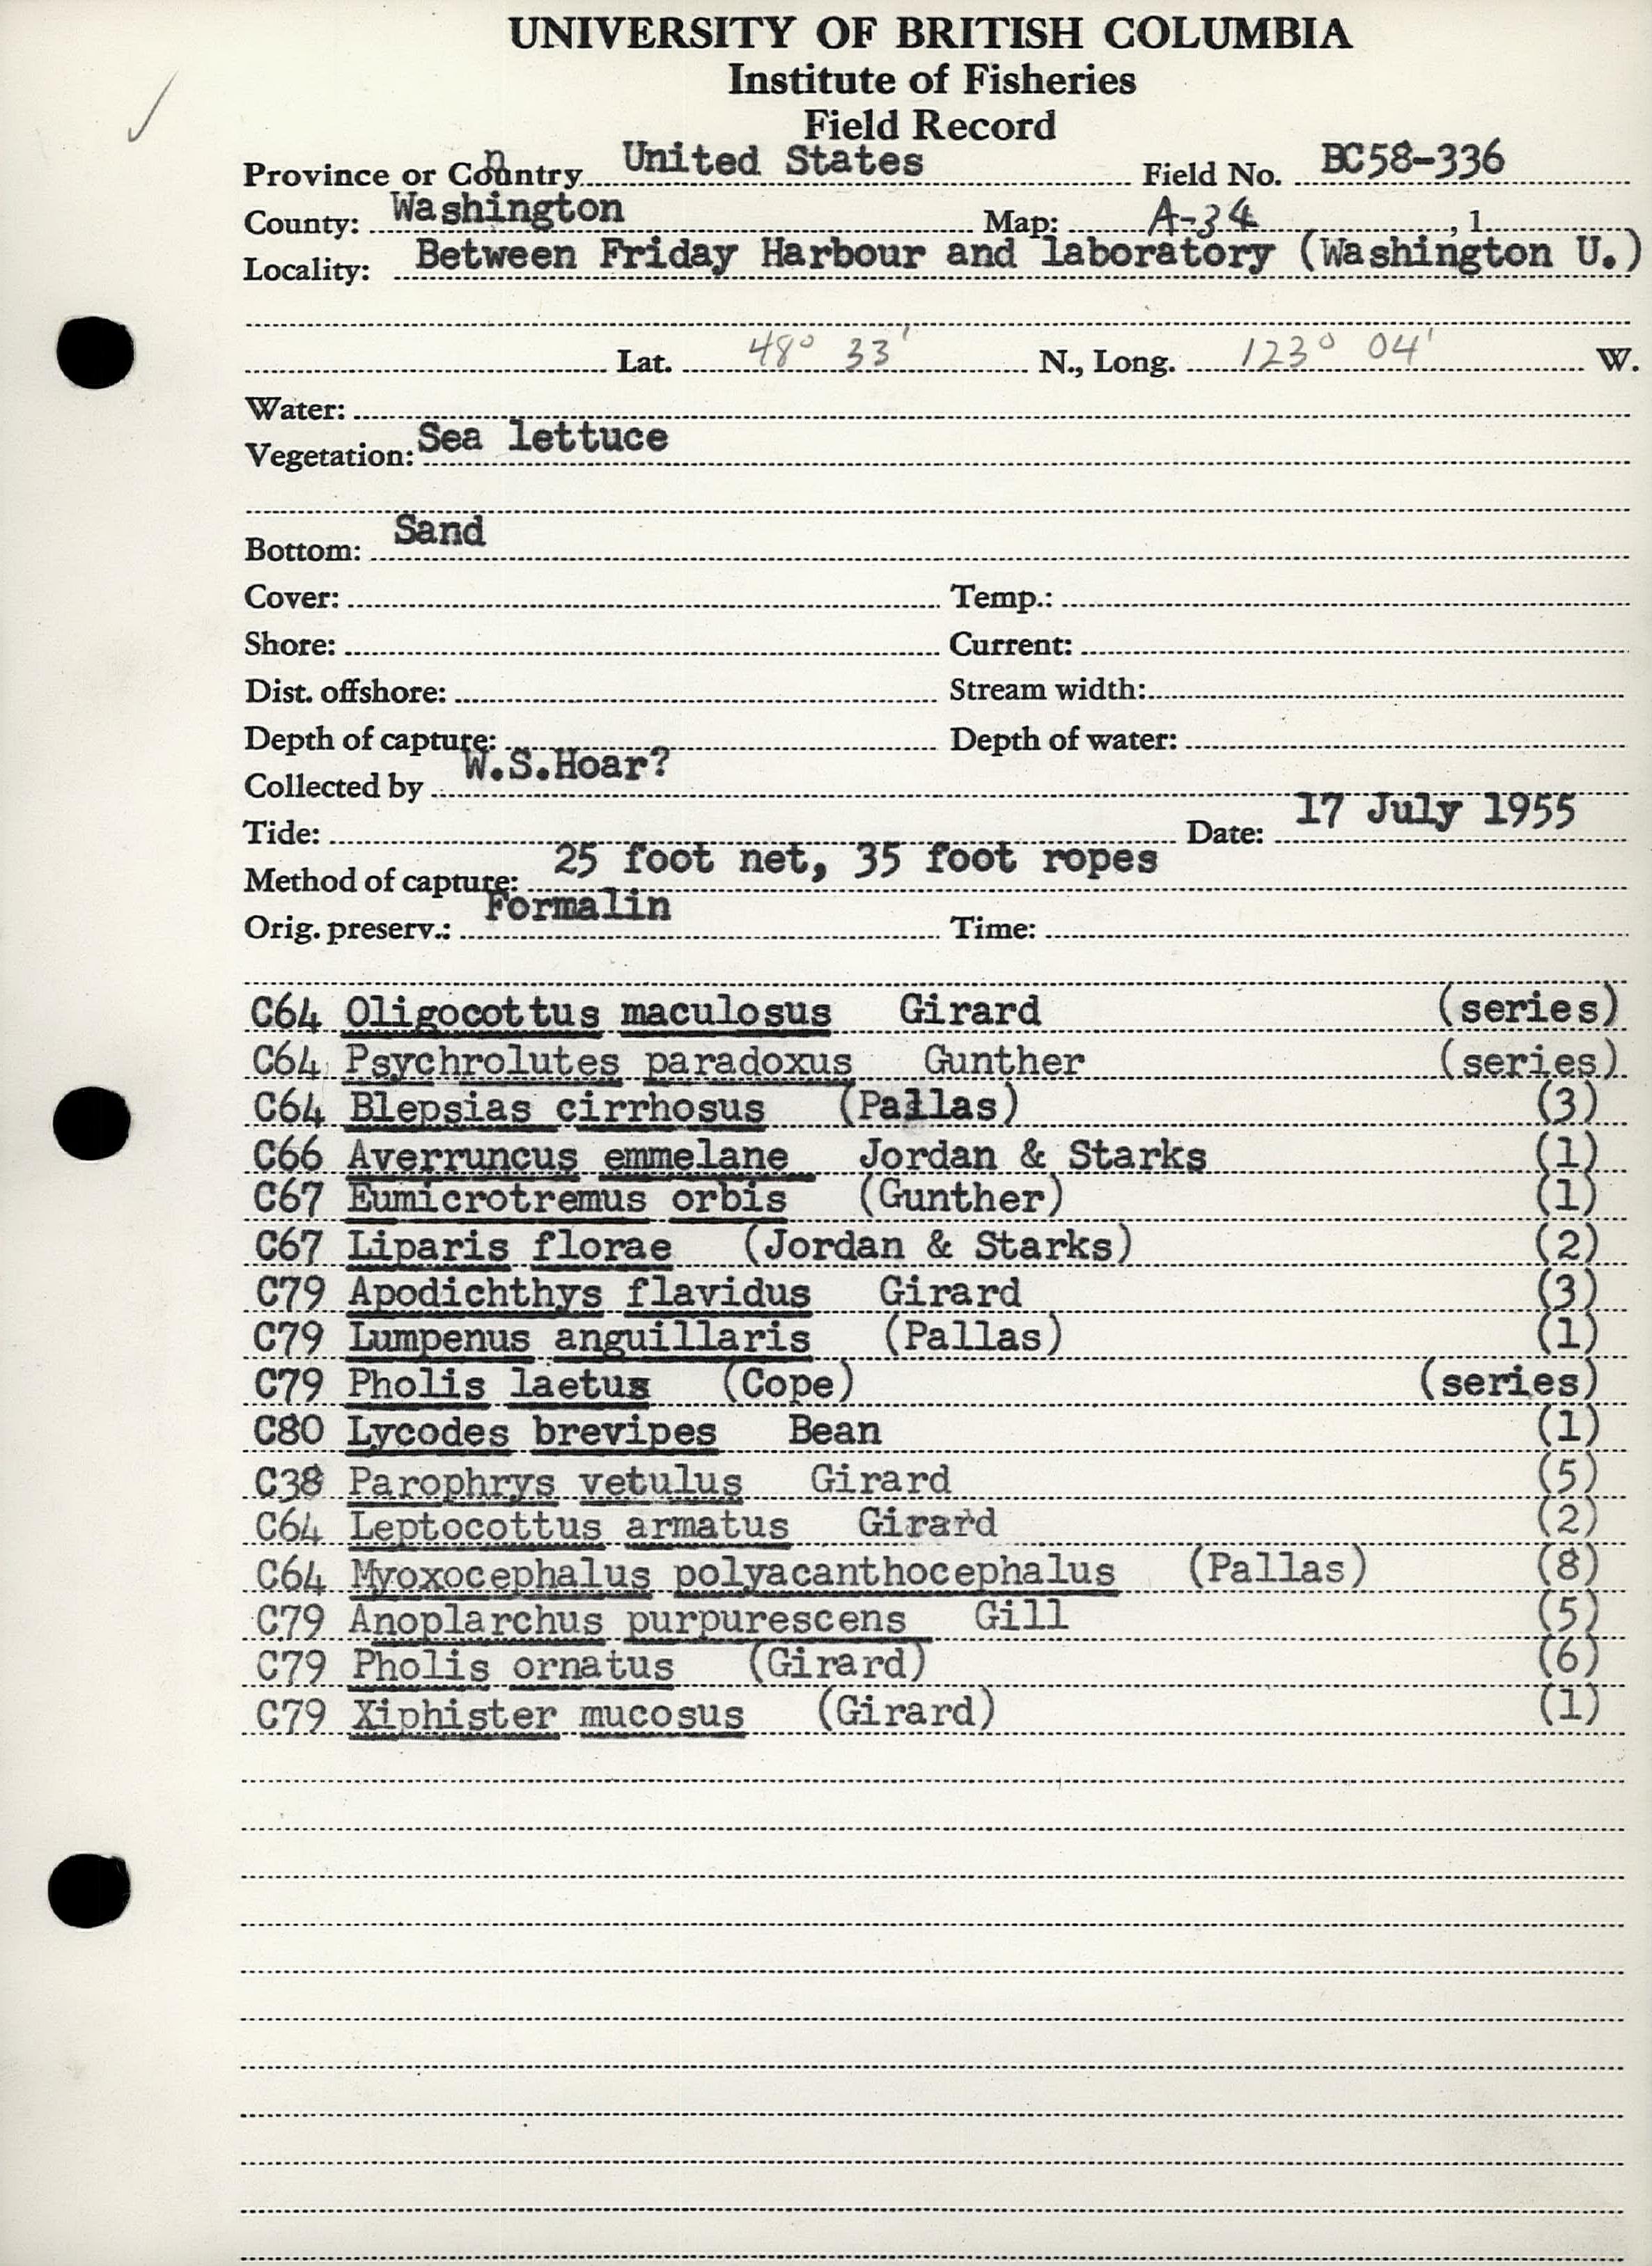 UNIVERSITY OF BRITISH COLUMBIA
Institute of Fisheries
Field Record
Province or Country United States Field No. BC58-336
County: Washington Map: A-34, 1.
Locality: Between Friday Harbour and laboratory (Washington U.)
Lat. 48° 33' N., Long. 123° 04' W.
Water:
Vegetation: Sea lettuce
Bottom: Sand
Cover: Temp.:
Shore: Current:
Dist. offshore: Stream width:
Depth of capture: Depth of water:
Collected by W.S.Hoar?
Tide: Date: 17 July 1955
Method of capture: 25 foot net, 35 foot ropes
Orig. preserv.: Formalin Time:
C64 Oligocottus maculosus Girard (series)
C64 Psychrolutes paradoxus Gunther (series)
C64 Blepsias cirrhosus (Pallas) (3)
C66 Averruncus emmelane Jordan & Starks (1)
C67 Eumicrotremus orbis (Gunther) (1)
C67 Liparis florae (Jordan & Starks) (2)
C79 Apodichthys flavidus Girard (3)
C79 Lumpenus anguillaris (Pallas) (1)
C79 Pholis laetus (Cope) (series)
C80 Lycodes brevipes Bean (1)
C38 Parophrys vetulus Girard (5)
C64 Leptocottus armatus Girard (2)
C64 Myoxocephalus polyacanthocephalus (Pallas) (8)
C79 Anoplarchus purpurescens Gill (5)
C79 Pholis ornatus (Girard) (6)
C79 Xiphister mucosus (Girard) (1)